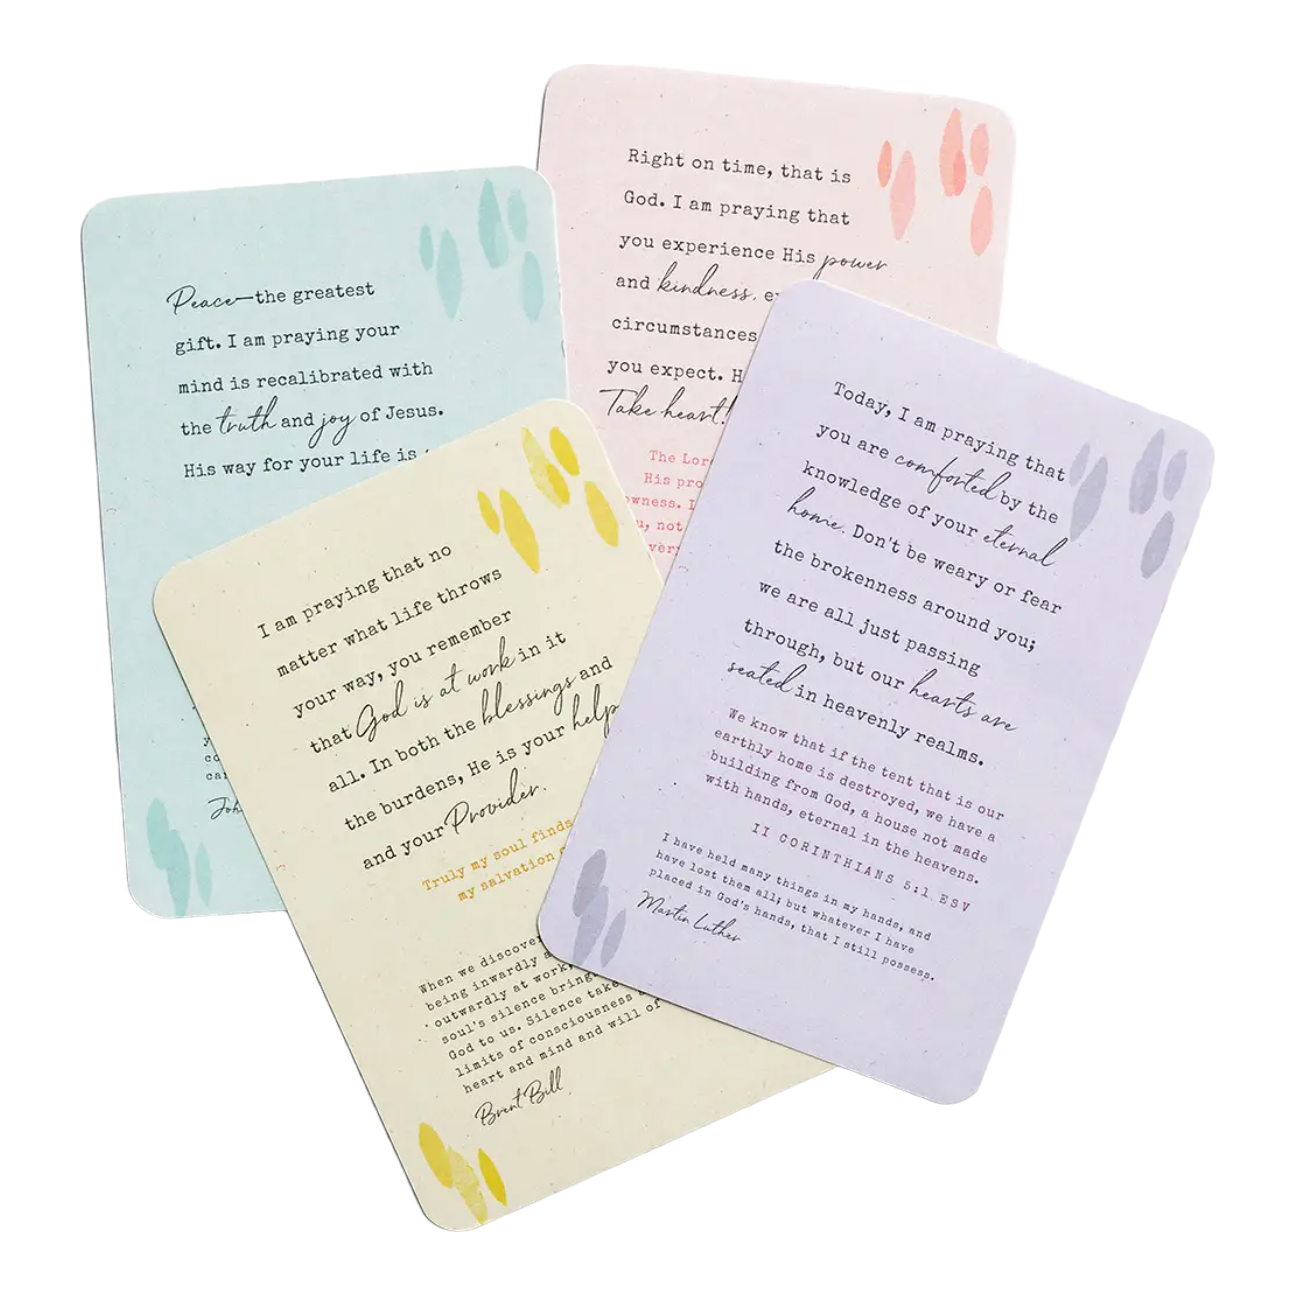 Peace—the greatest
gift. I am praying your
mind is recalibrated with
the truth and joy of Jesus.
His way for your life is
Right on time, that is
God. I am praying that
you experience His power
and kindness,
circumstances
you expect.
Take heart!
The
His
I
not
I am praying that no
matter what life throws
your way, you remember
that God is at work in it
all. In both the blessings and
the burdens, He is your
and your Provider.
Truly my soul finds
my salvation
When we
being inwardly
outwardly at
soul's silence
God to us. Silence
limits of consciousness
heart and mind and will of
Brent Bill
Today, I am praying that
you are comforted by the
knowledge of your eternal
home. Don't be weary or fear
the brokenness around you;
we are all just passing
through, but our hearts are
seated in heavenly realms.
We know that if the tent that is our
earthly home is destroyed, we have a
building from God, a house not made
with hands, eternal in the heavens.
II CORINTHIANS 5:1 ESV
I have held many things in my hands, and
have lost them all; but whatever I have
placed in God's hands, that I still possess.
Martin Luther